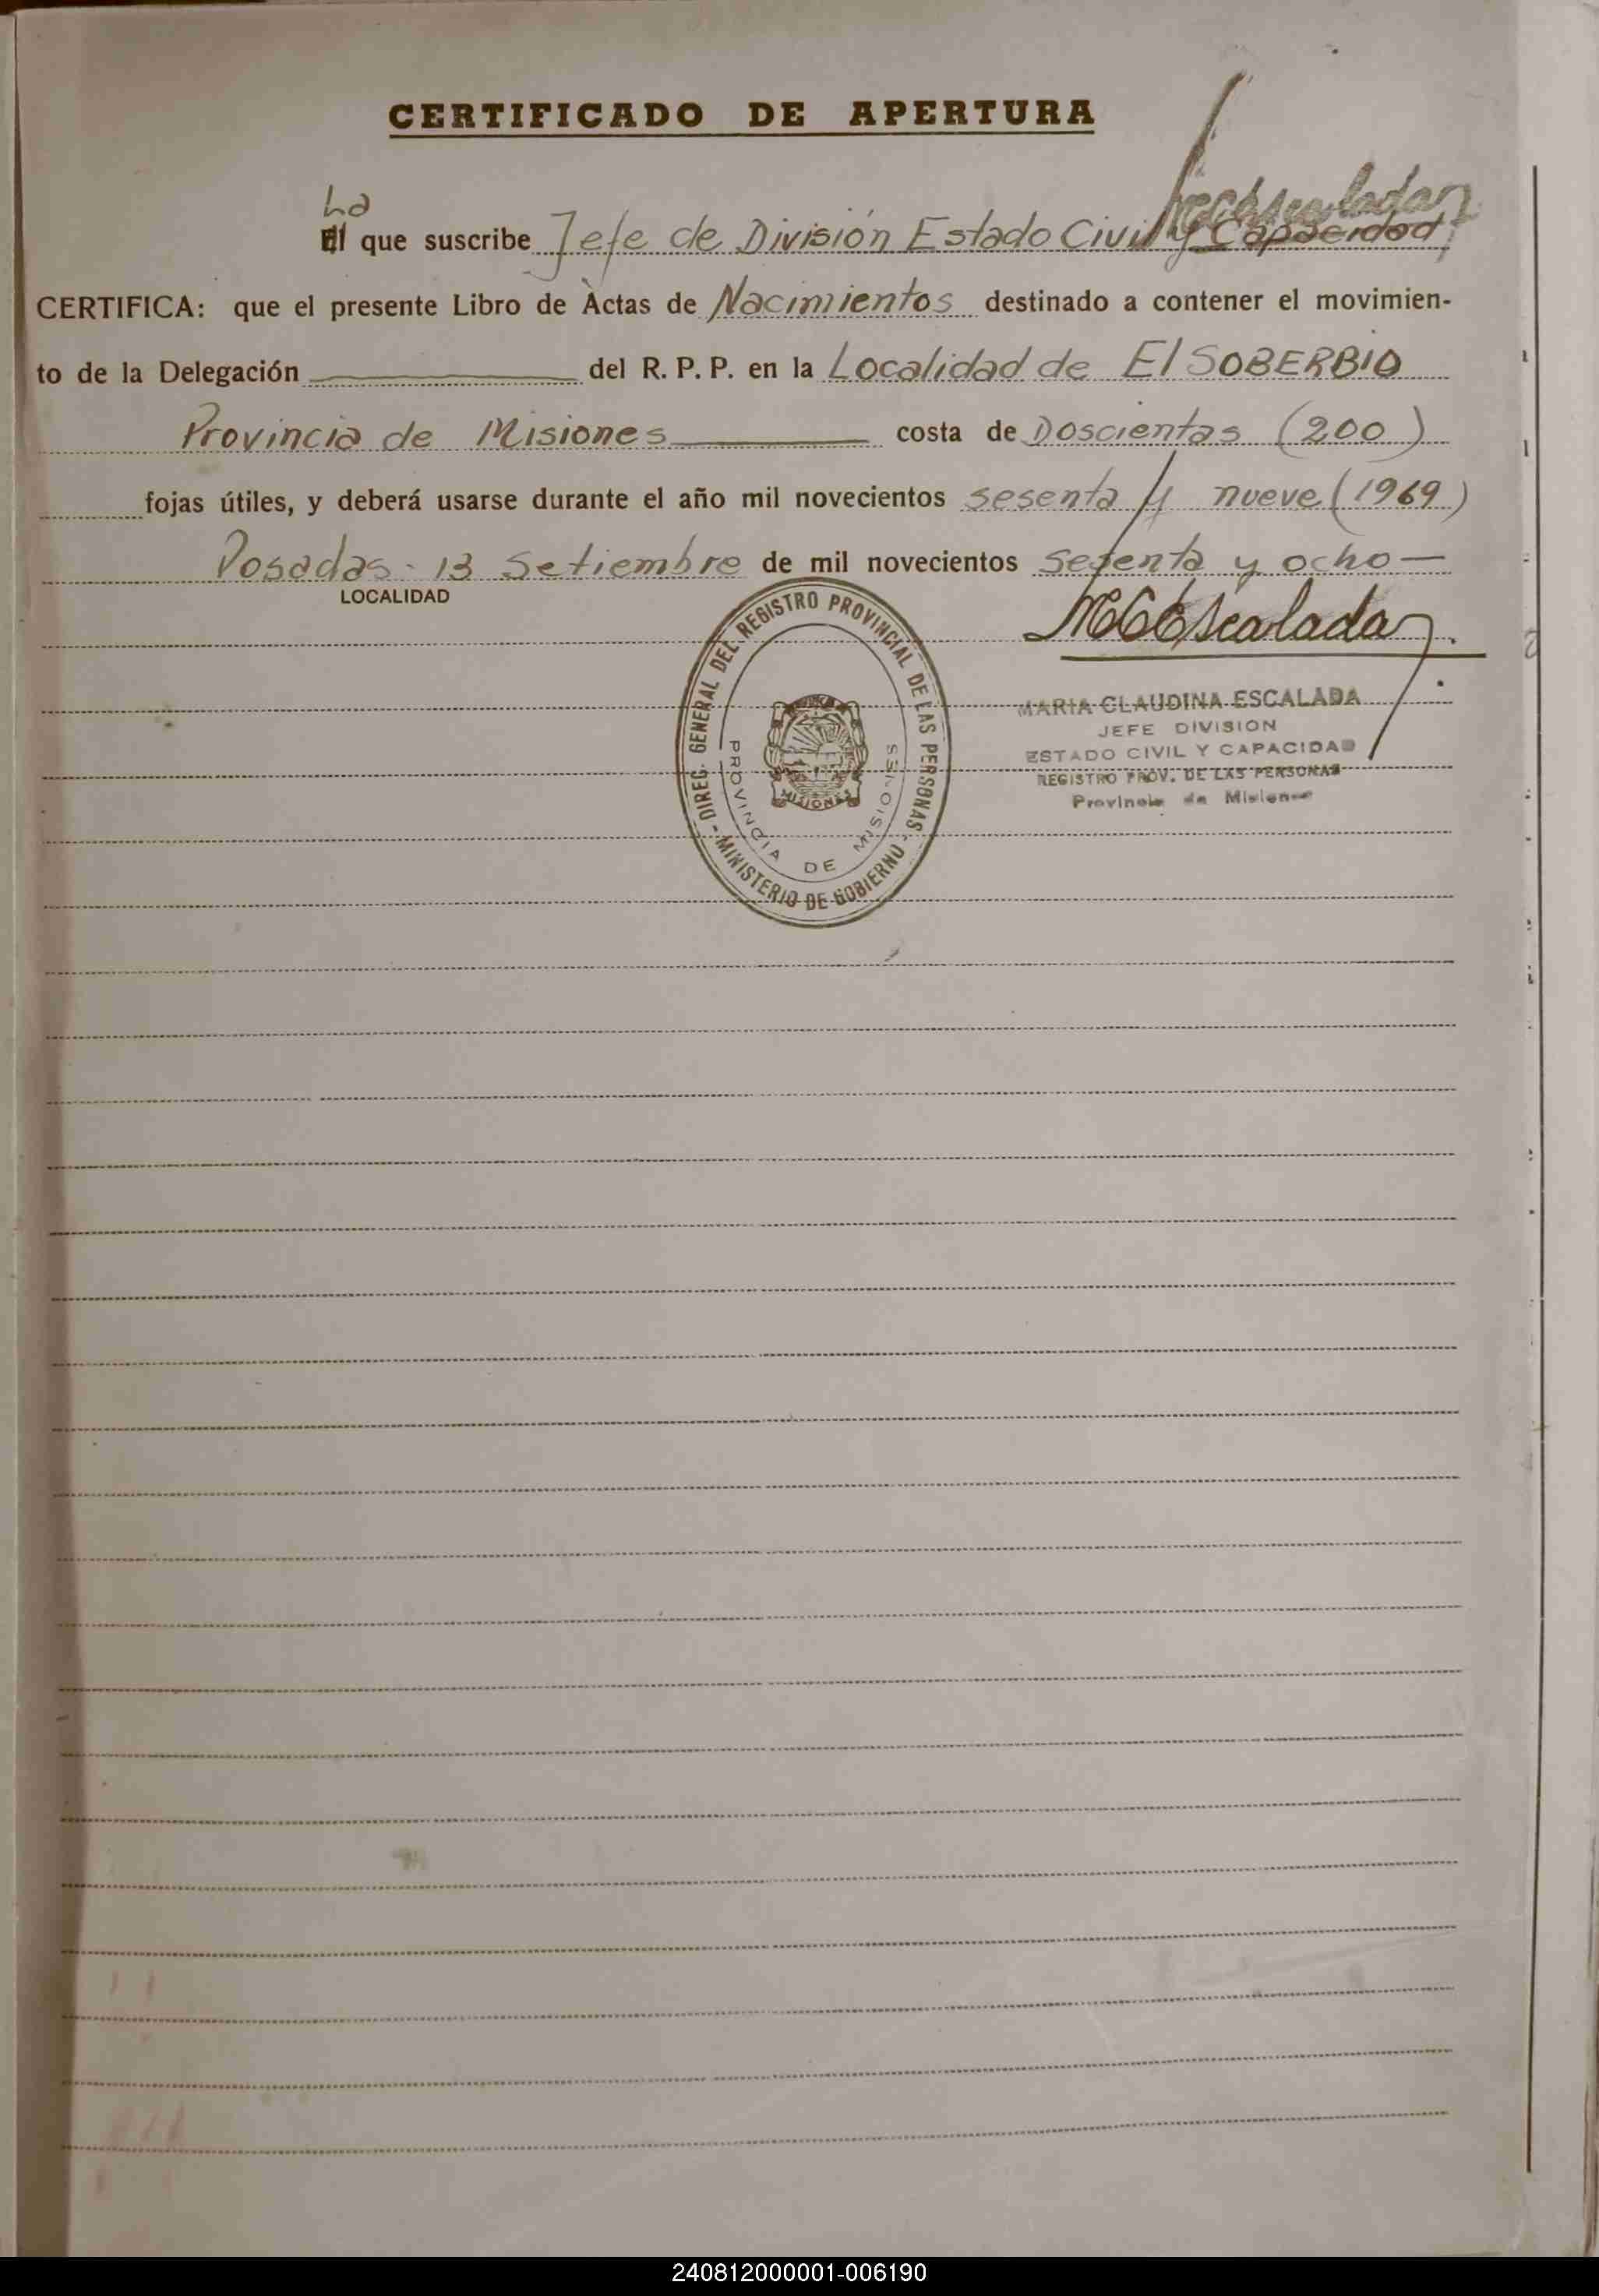 CERTIFICADO DE APERTURA
La
El que suscribe Jefe de División Estado Civil y Capacidad
CERTIFICA: que el presente Libro de Actas de Nacimientos destinado a contener el movimien-
to de la Delegación del R. P. P. en la Localidad de El SOBERBIO
Provincia de Misiones costa de Doscientas (200)
fojas útiles, y deberá usarse durante el año mil novecientos sesenta y nueve (1969)
Posadas - 13 Setiembre de mil novecientos sesenta y ocho —
LOCALIDAD
MCEscalada
DIREG. GENERAL DEL REGISTRO PROVINCIAL DE LAS PERSONAS - MINISTERIO DE GOBIERNO -
PROVINCIA DE MISIONES
MISIONES
MARIA CLAUDINA ESCALADA
JEFE DIVISION
ESTADO CIVIL Y CAPACIDAD
REGISTRO PROV. DE LAS PERSONAS
Provincia de Misiones
240812000001-006190